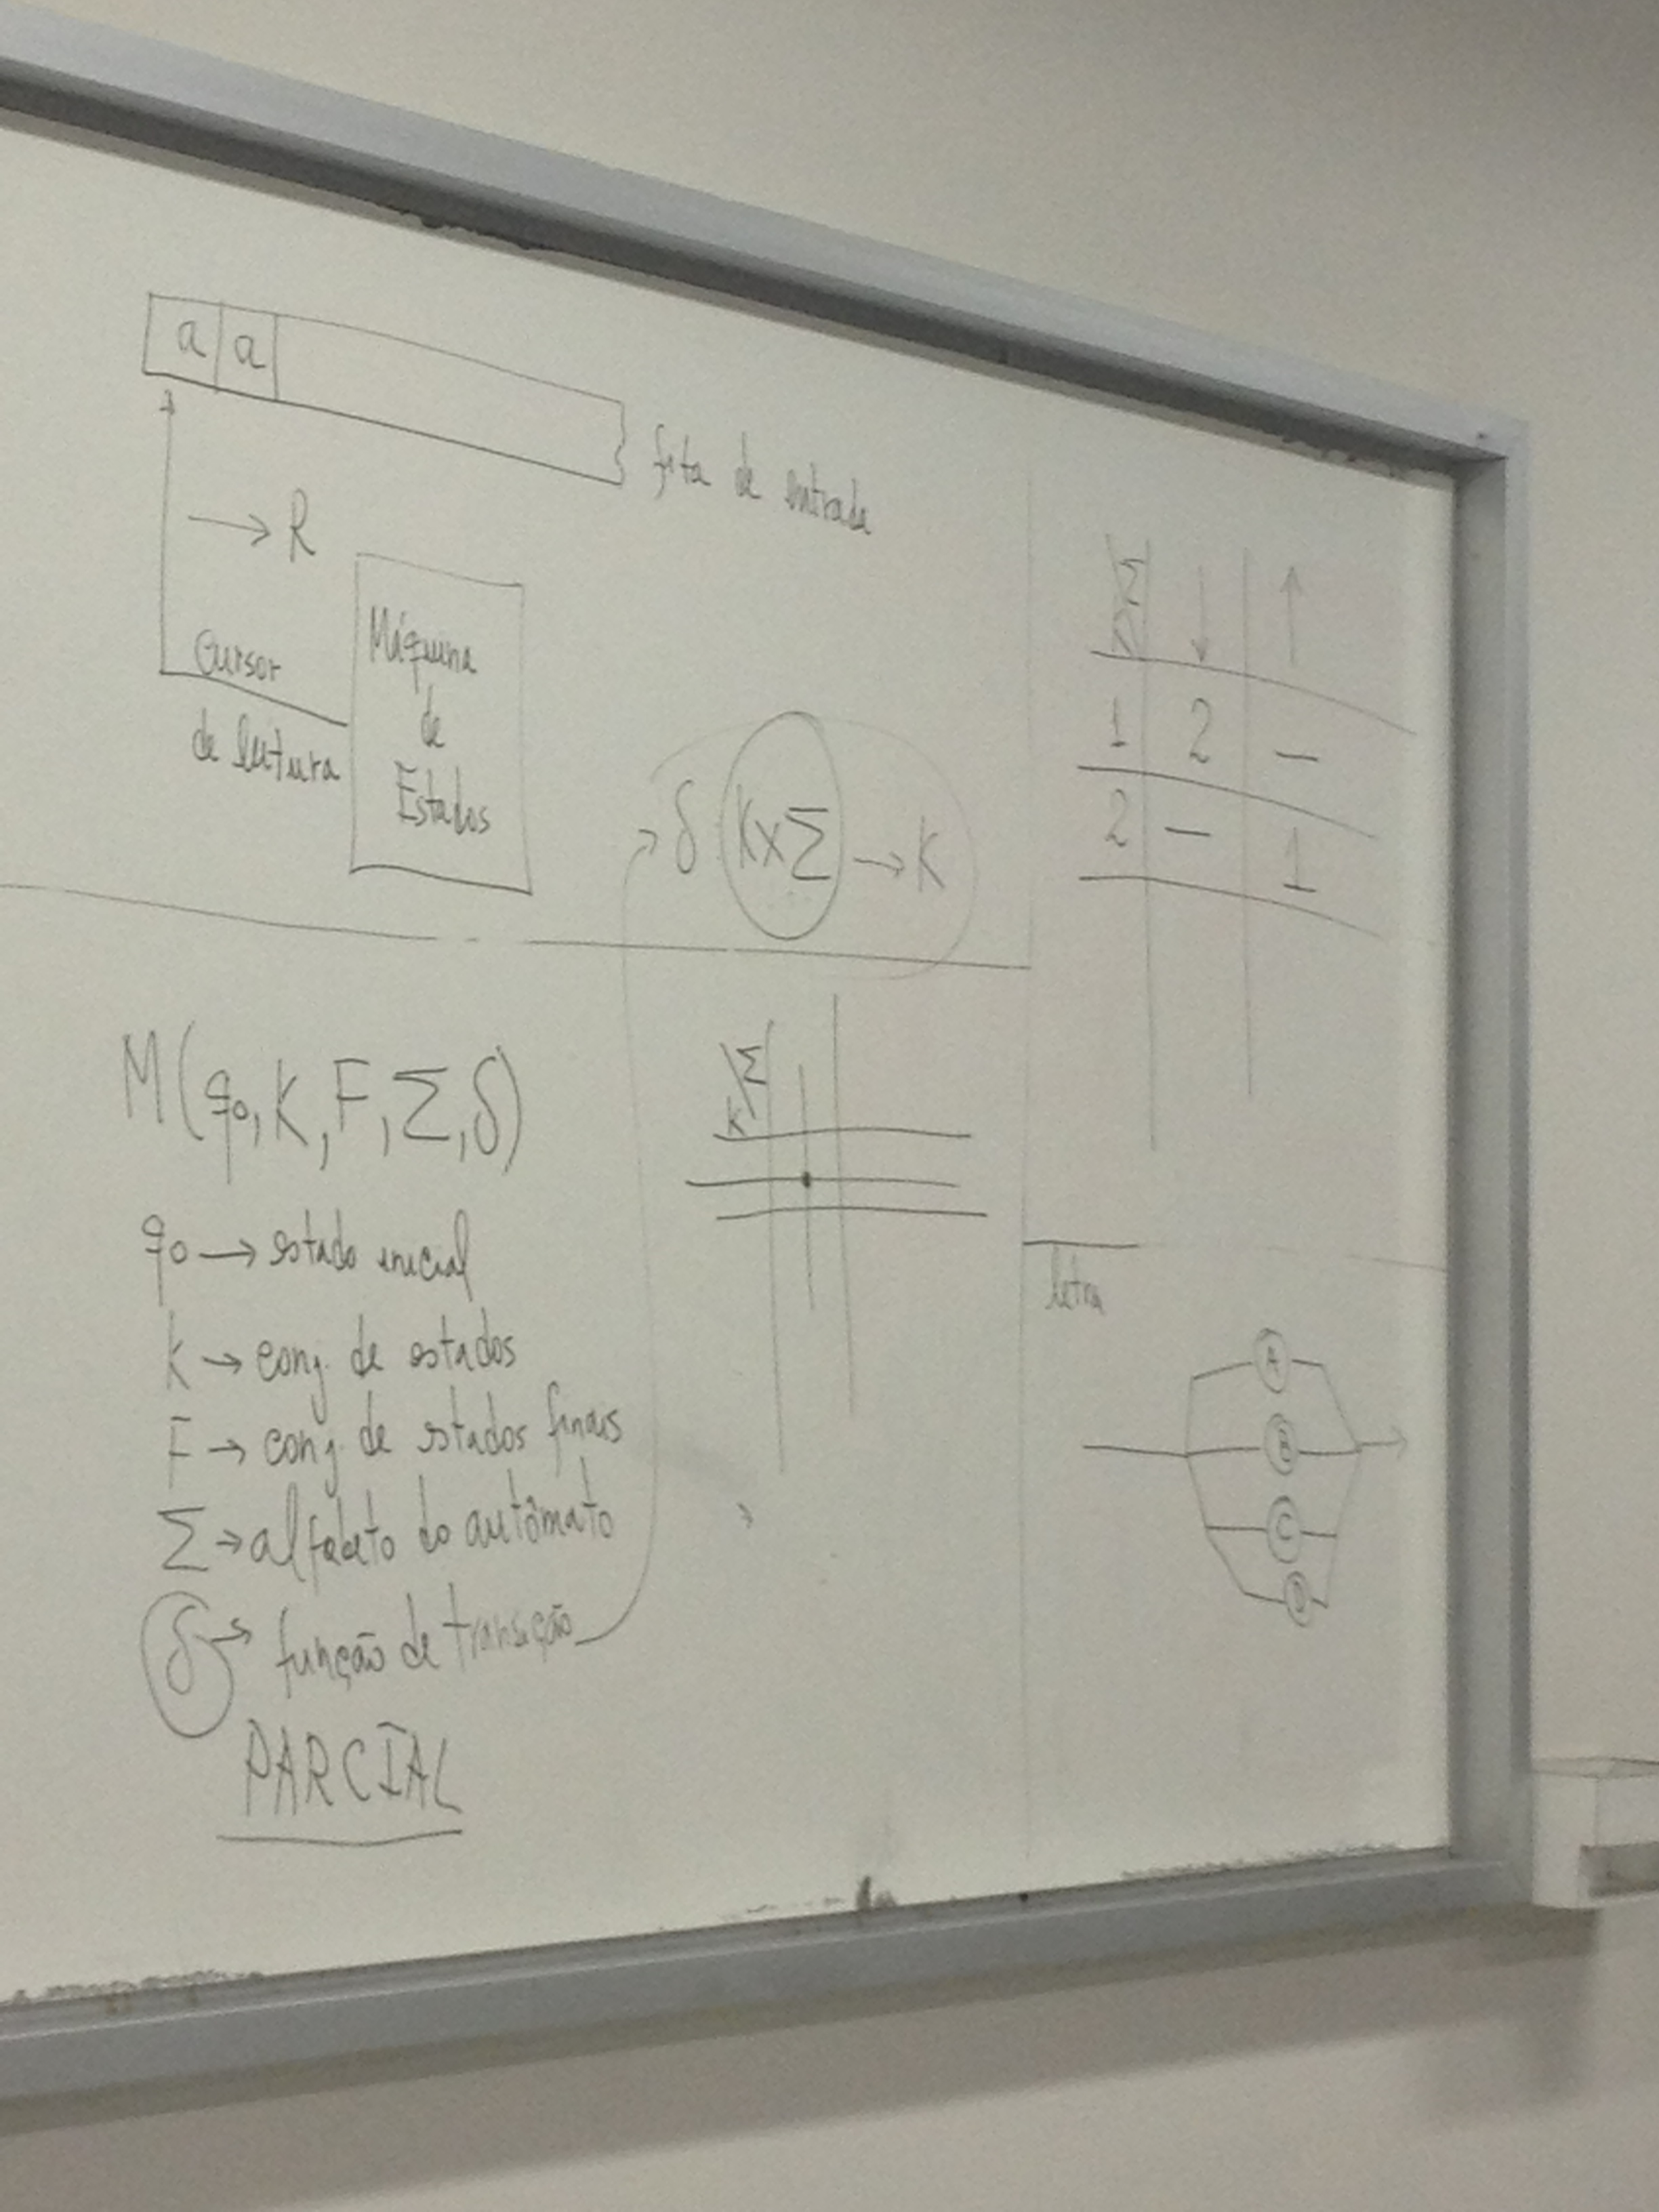 a a
fita de entrada
→ R
Cursor
de leitura
Máquina
de
Estados
δ K×Σ → K
M(q0, K, F, Σ, δ)
q0 → estado inicial
K → conj. de estados
F → conj. de estados finais
Σ → alfabeto do autômato
δ → função de transição
PARCIAL
K Σ
K Σ ↓ ↑
1 2 –
2 – 1
letra
A
B
C
D